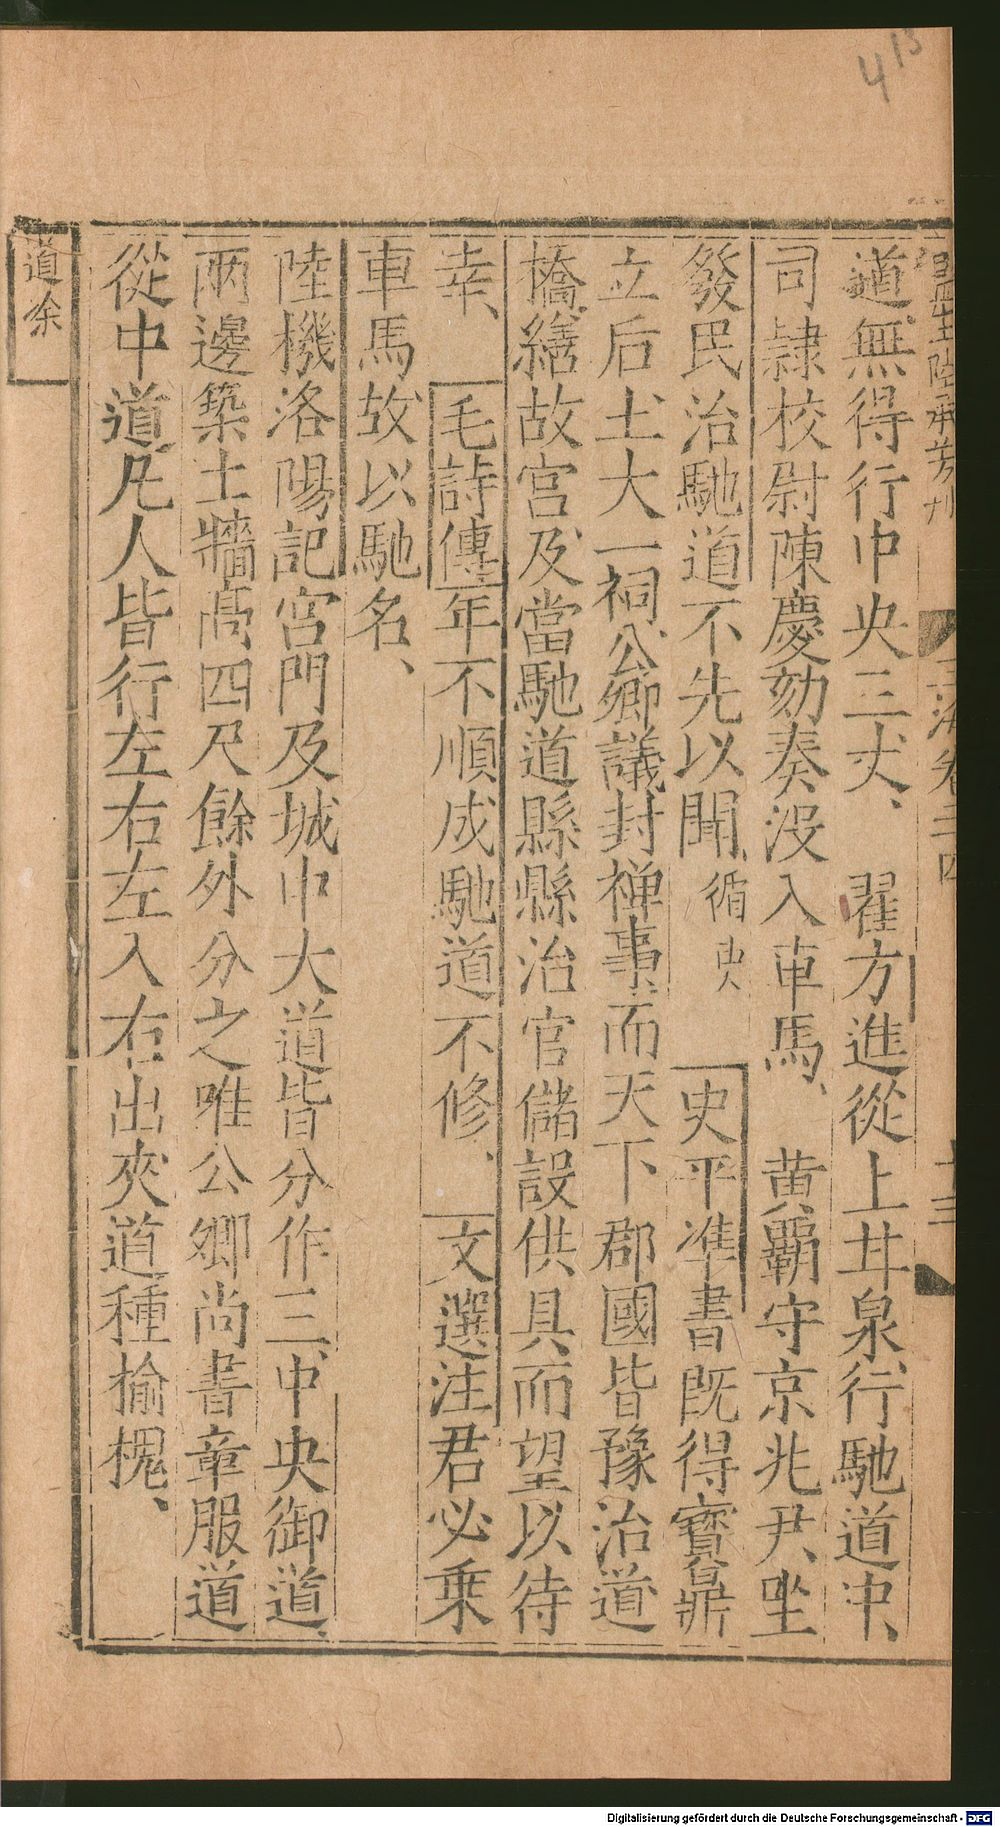 415
監生陸承芳刊
玉海卷二四
十三
道無得行中央三丈、　翟方進從上甘泉行馳道中、
司隷校尉陳慶劾奏没入車馬、　黄覇守京兆尹、坐
發民治馳道不先以聞、循吏　史平準書既得寶鼎
立后土、大一祠、公卿議封禅事、而天下郡國皆豫治道
橋、繕故宫、及當馳道縣縣治官儲設供具而望以待
幸、　毛詩傳年不順成馳道不修、　文選注君必乗
車馬故以馳名、
陸機洛陽記宫門及城中大道皆分作三、中央御道、
兩邊築土牆髙四尺餘外分之唯公卿尚書章服道
從中道、凡人皆行左右左入右出夾道種榆槐、
道涂
Digitalisierung gefördert durch die Deutsche Forschungsgemeinschaft - DFG